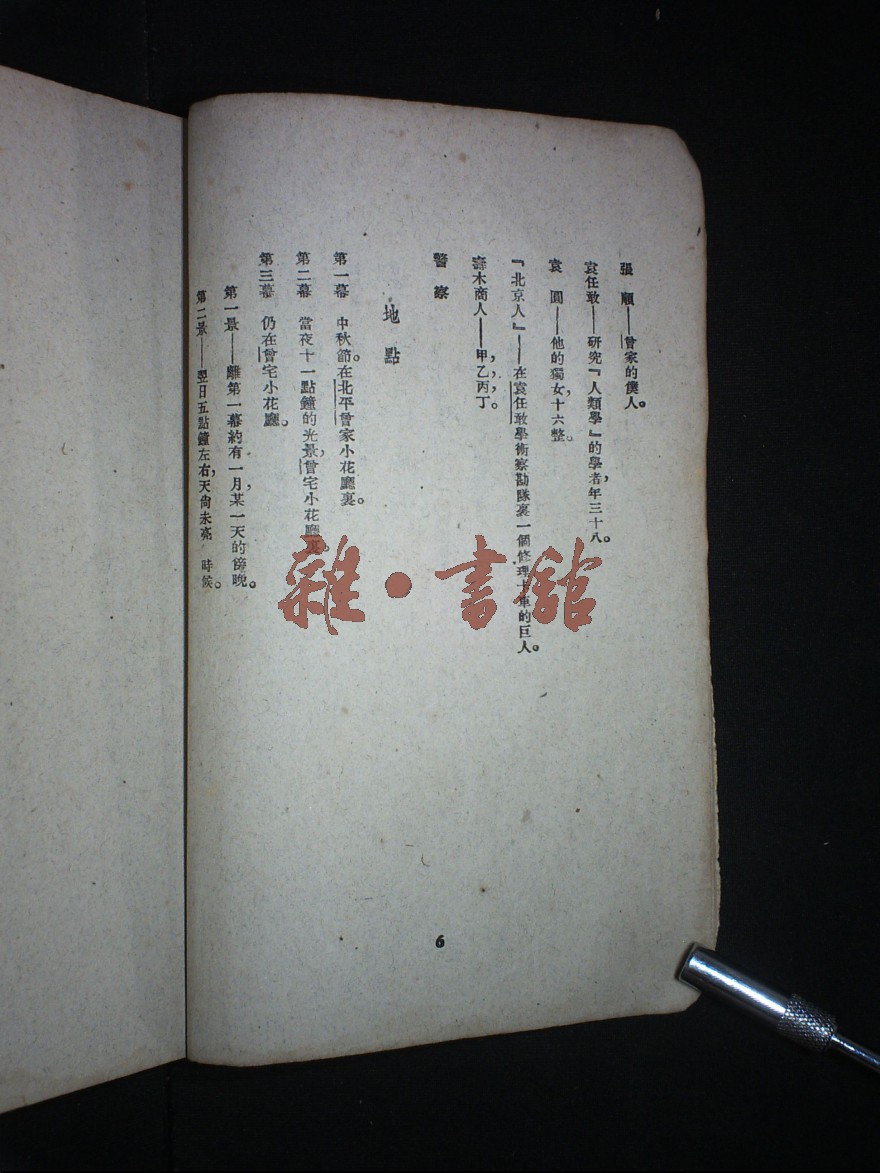 張　順——曾家的僕人。
袁任敢——研究『人類學』的學者，年三十八。
袁　圓——他的獨女，十六整。
『北京人』——在袁任敢學術察勘隊裏一個修理卡車的巨人。
壽木商人——甲，乙，丙，丁。
警　察
地　點
第一幕　中秋節。在北平曾家小花廳裏。
第二幕　當夜十一點鐘的光景，曾宅小花廳裏。
第三幕　仍在曾宅小花廳。
第一景——離第一幕約有一月，某一天的傍晚。
第二景——翌日五點鐘左右，天尚未亮　時候。
6
雜・書館